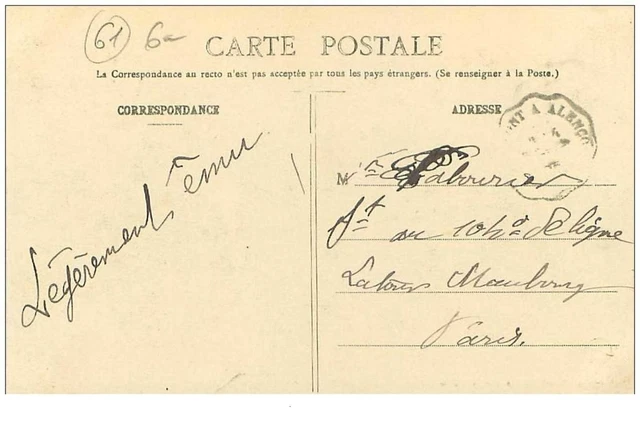 61 6a
CARTE POSTALE
La Correspondance au recto n'est pas acceptée par tous les pays étrangers. (Se renseigner à la Poste.)
CORRESPONDANCE
ADRESSE
NT A ALENÇO
Légèrement ému
Mr Labourier
au 104e de ligne
Latour Maubourg
Paris.